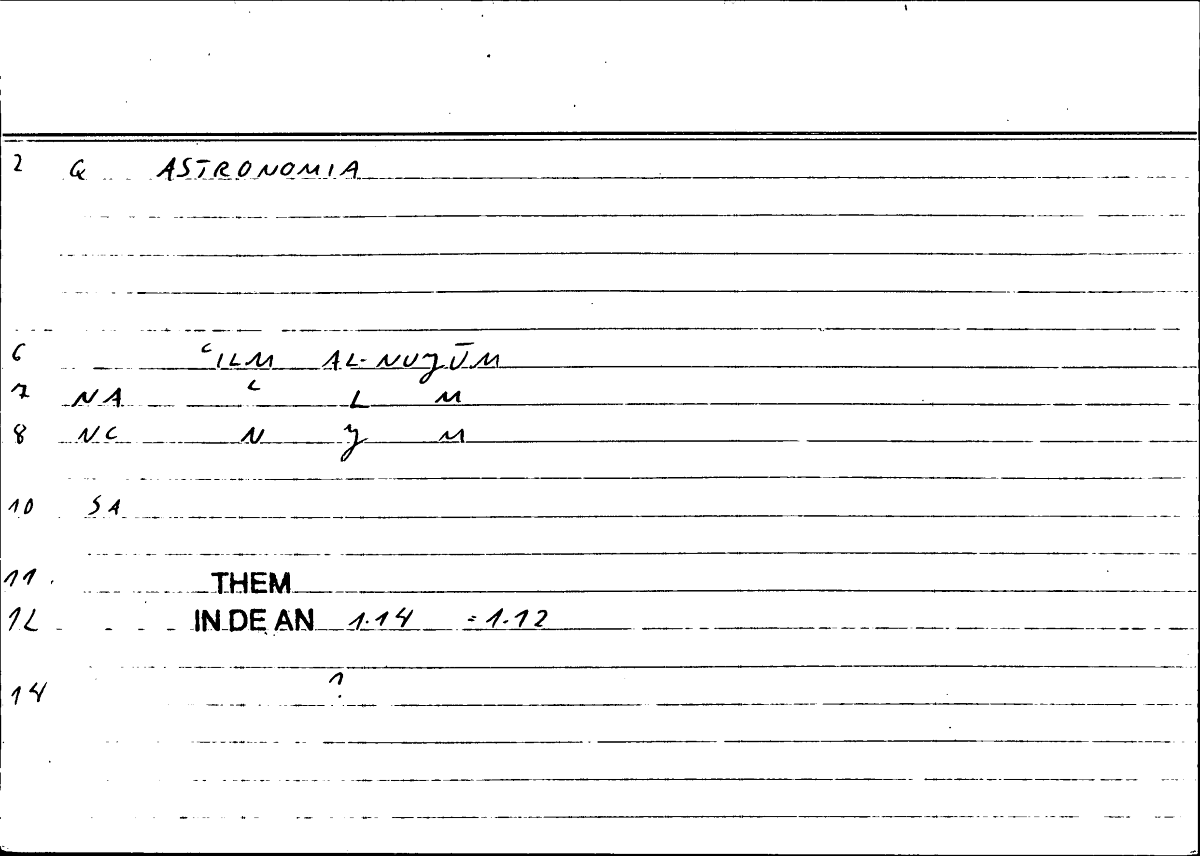 2 Q ASTRONOMIA
6 ʿILM AL-NUǧŪM
7 NA ʿ L M
8 NC N ǧ M
10 SA
11. THEM
12 IN DE AN 1.14 = 1.12
14 ?